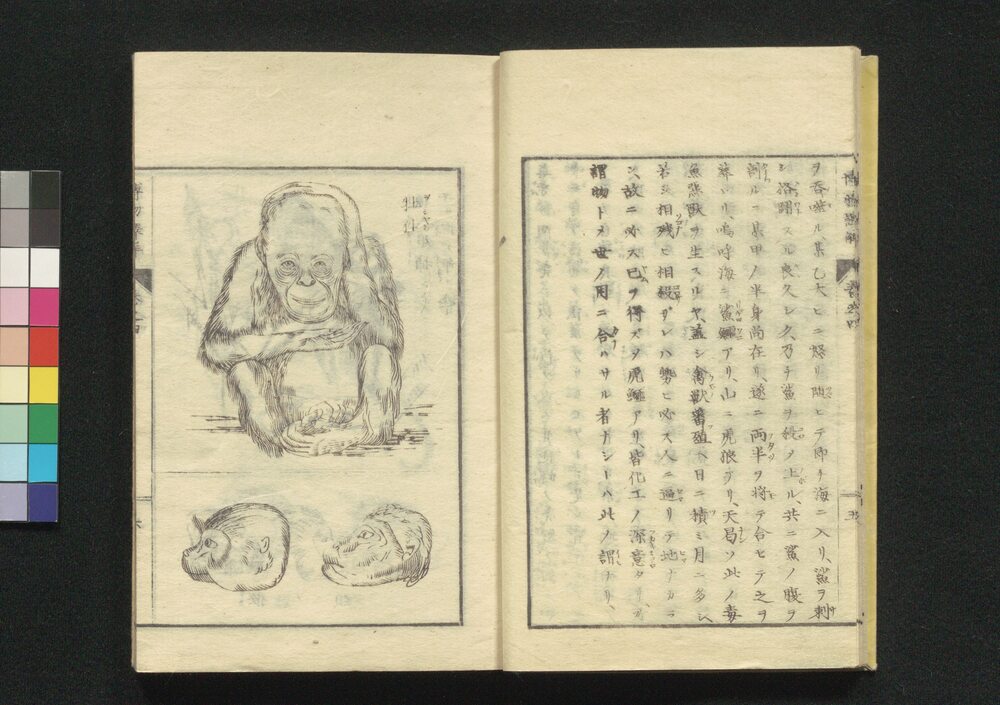 ヲ呑噬ル某乙大ヒニ怒リ随ヒテ即リ海ニ入リ、鯊ヲ刺
シ、 闘スル良久シク、乃チ鯊ヲ殺メ上ル、共ニ鯊ノ腹ヲ
ルニ某甲ノ半身尚在リ、遂ニ両半ヲ将テ合セテ之ヲ
葬レリ、嗚呼海ニ鯊鰐アリ、山ニ虎狼アリ、天曷ソ此ノ毒
魚悪獣ヲ生スルヤ、蓋シ禽獣蕃殖ヘ日ニ積ミ月ニ多シ、
若シ相残ヒ相殺サレハ勢ヒ必ス人ニ逼リテ地ナカラ
ン、故ニ必ス已ヲ得ズメ虎鰐アリ、皆化工ノ深意タリ、
謂物トメ世ノ用ニ合ハサル者ナシトハ此ノ謂ナリ、
五